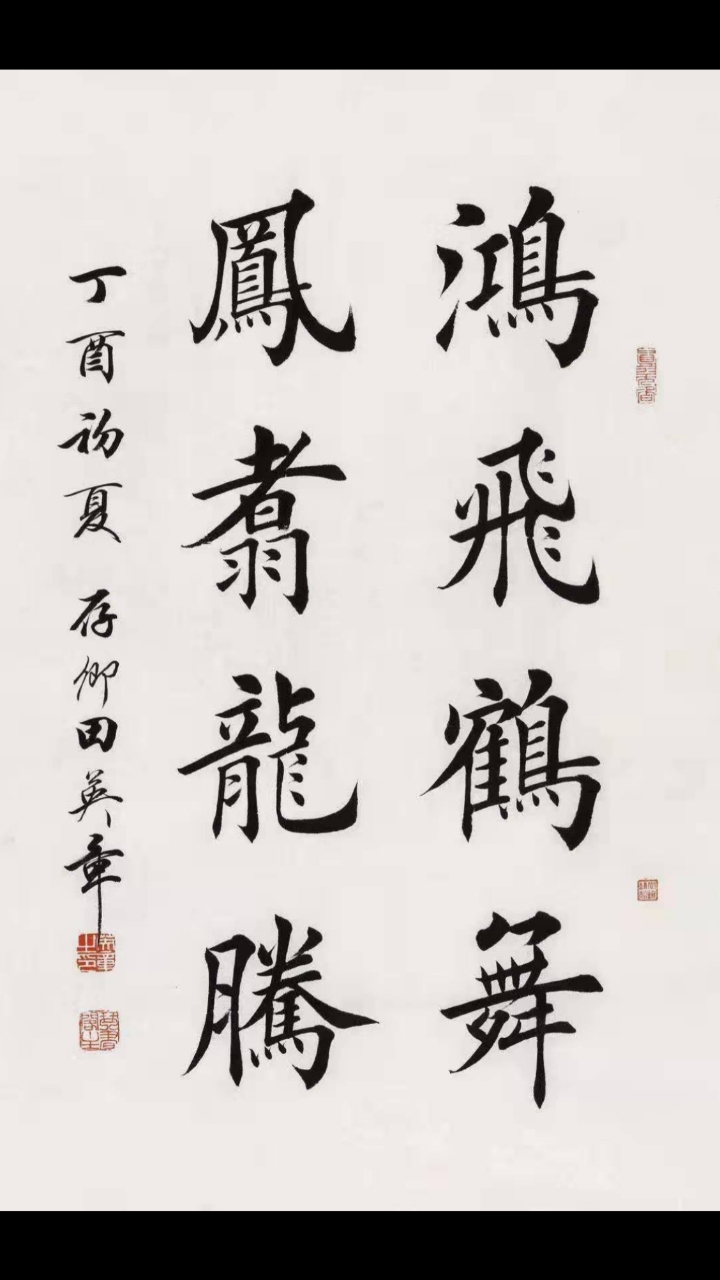 鴻飛鶴舞
鳳翥龍騰
丁酉初夏 存卿田英章